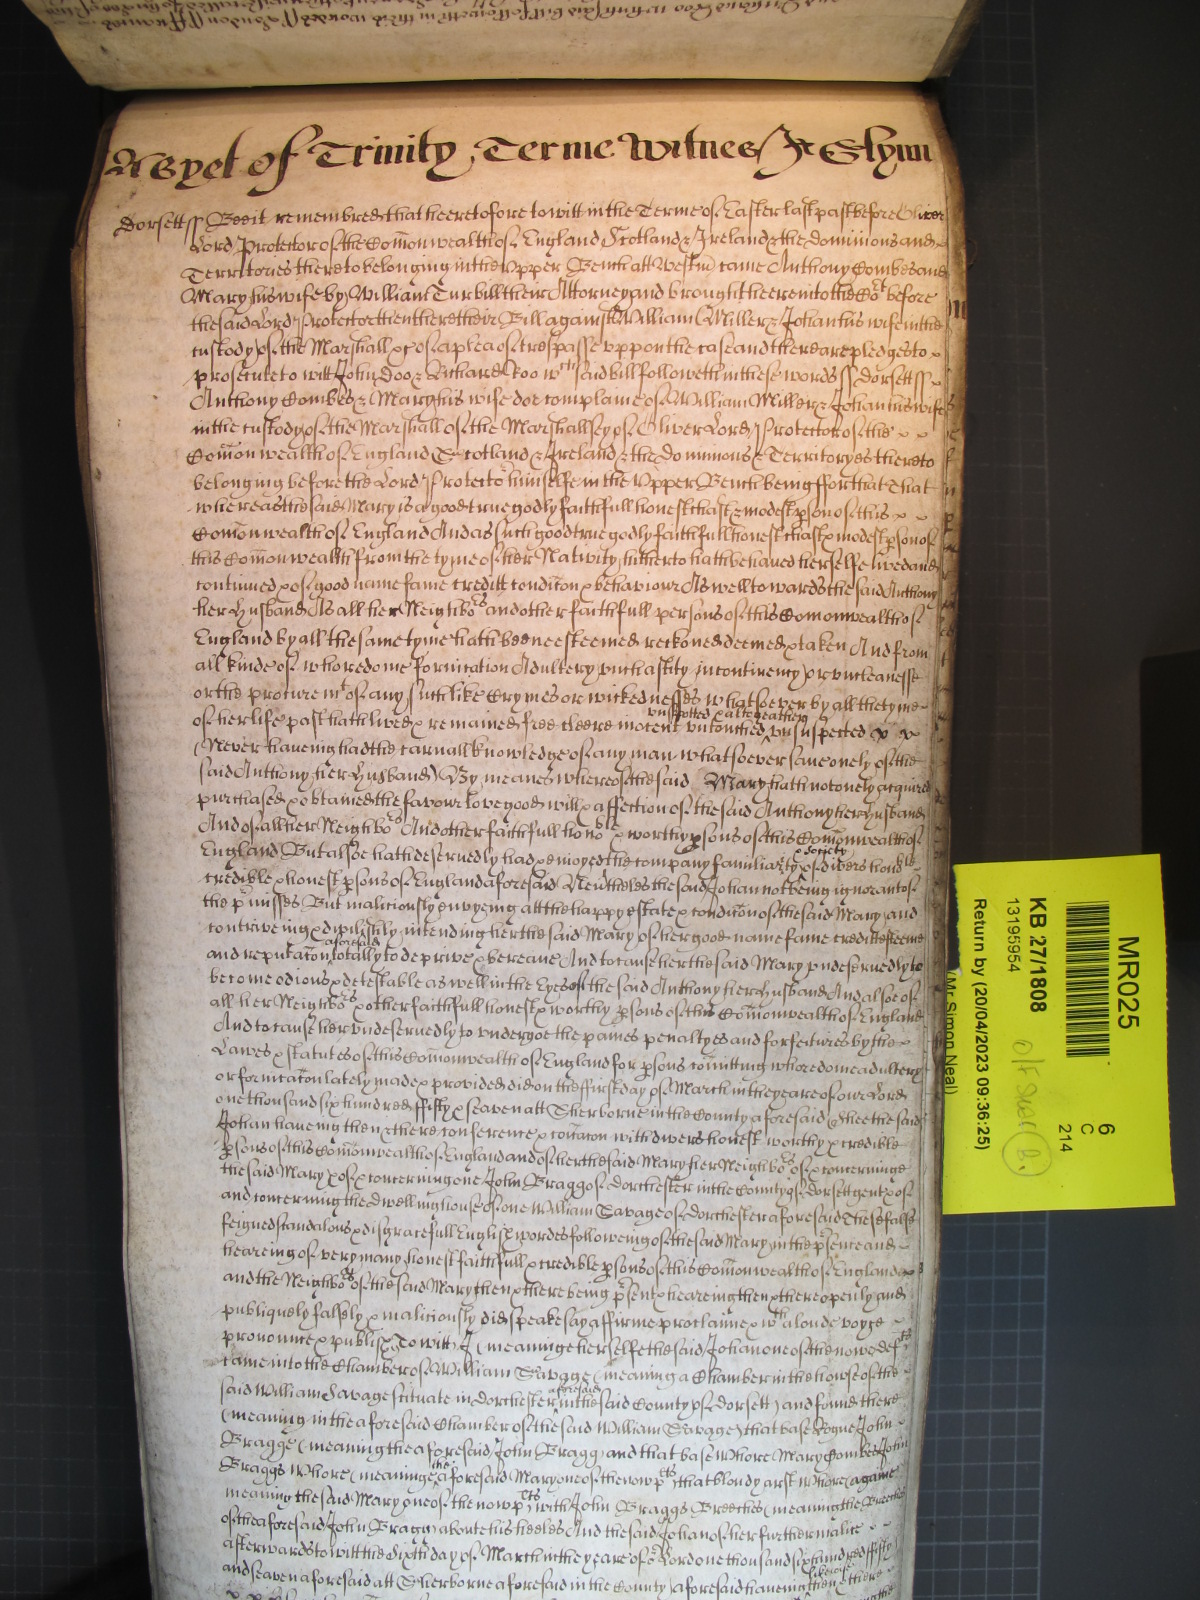 As yet of Trinity Terme Witnes Jo Glynn
Dorsett ss Bee it remembred that heeretofore to witt in the Terme of Easter last past before Oliver
Lord Protector of the Com̄onwealth of England Scotland & Ireland & the dominions and
Territories thereto belonging in the Upper Bench att Westm̄ came Anthony Combes and
Mary his wife by William Turbill their Attorney and brought heere into the Cort before
the said Lord Protector then there their Bill against William Miller & Johan his wife in the
custody of the Marshall &c of a plea of trespasse uppon the case and there are pledges to x
prosecute to witt John Doo & Richard Roo wch said bill followeth in these words ss Dorsett ss
Anthony Combes & Mary his wife doe complaine of William Miller & Johan his wife
in the custody of the Marshall of the Marshallsey of Oliver Lord Protector of the x x
Com̄onwealth of England Scotland & Ireland & the dominions & Territoryes thereto
belonging before the Lord Protector himselfe in the Upper Bench being ffor that That
whereas the said Mary is a good true godly faithfull honest chast & modest pson of this x x
Com̄onwealth of England And as such good true godly faithfull honest chast & modest pson of
this Com̄onwealth from the tyme of her Nativity hitherto hath behaved herselfe lived and
continued & of good name fame creditt condic̄on & behaviour As well towards the said Anthony
her Husband As all her Neighbors and other faithfull persons of this Com̄onwealth of
England by all the same tyme hath beene esteemed reckoned deemed & taken And from
all kinde of whoredome fornication Adultery unchastity incontinency or uncleanesse
or the procuremt of any such like Crymes or wickednesses whatsoever by all the tyme
of her life past hath lived & remained free cleere inocent untouched unspotted & altogeather unsuspected x x
(Never haveing had the carnall knowledge of any man whatsoever save onely of the
said Anthony her Husband) By meanes whereof the said Mary hath not onely acquired
purchased & obtained the favour love good will & affection of the said Anthony her Husband
And of all her Neighbors And other faithfull honoble & worthy psons of this Com̄onwealth of
England But alsoe hath deservedly had & enjoyed the company familiarity & society of divers honoble
credible & honest psons of England aforesaid Nevtheles the said Johan not being ignorant of
the pmisses But maliciously envyeing att the happy estate & condic̄on of the said Mary and
contriveing & divilishly intending her the said Mary of her good name fame creditt esteeme
and reputac̄on aforesaid totally to deprive & bereave And to cause her the said Mary undeservedly to
become odious & detestable as well in the Eyes of the said Anthony her Husband And alsoe of
all her Neighbors & other faithfull honest & worthy psons of this Com̄onwealth of England
And to cause her undeservedly to undergoe the paines penaltyes and forfeitures by the x
Lawes & statutes of this Com̄onwealth of England for psons com̄itting whoredome adultery
or fornicac̄on lately made & provided did on the ffirst day of March in the yeare of our Lord
one thousand six hundred ffifty & seaven att Sherborne in the County aforesaid Shee the said
Johan haveing then & there conference & com̄unicac̄on with divers honest worthy & credible
psons of this Com̄onwealth of England and of her the said Mary her Neighbors of & concerninge
the said Mary & of & concerning one John Bragg of Dorchester in the County of Dorsett gent & of
and concerning the dwelling house of one William Savage of Dorchester aforesaid These false
feigned scandalous & disgracefull English wordes followeing of the said Mary in the psence and
heareing of very many honest faithfull & credible psons of this Com̄onwealth of England &
and the Neighbors of the said Mary then & there being psent & heareing then & there openly and
publiquely falsly & maliciously did speake say affirme proclaime & wth a loude voyce
pronounce & publish To witt I (meaninge herselfe the said Johan one of the now defts
came into the Chamber of William Savage (meaning a Chamber in the house of the
said William Savage scituate in Dorchester aforesaid in the said County of Dorsett) and found there
(meaning in the aforesaid Chamber of the said William Savage) that base Rogue John
Bragge (meaning the aforesaid John Bragg) and that base Whore Mary Combes John
Braggs Whore (meaninge the aforesaid Mary one of the now plts) that bloudy arst Whore (againe
meaning the said Mary one of the now plts) with John Braggs Breeches (meaning the Breeches
of the aforesaid John Bragg) about his heeles And the said Johan of her further malice
afterwards to witt the Sixth day of March in the yeare of or Lord one thousand six hundred ffifty
and seaven aforesaid att Sherborne aforesaid in the County aforesaid haveing then & there
MR025
6
C
214
KB 27/1808
13195954
Return by (20/04/2023 09:36:25)
(Mr Simon Neal)